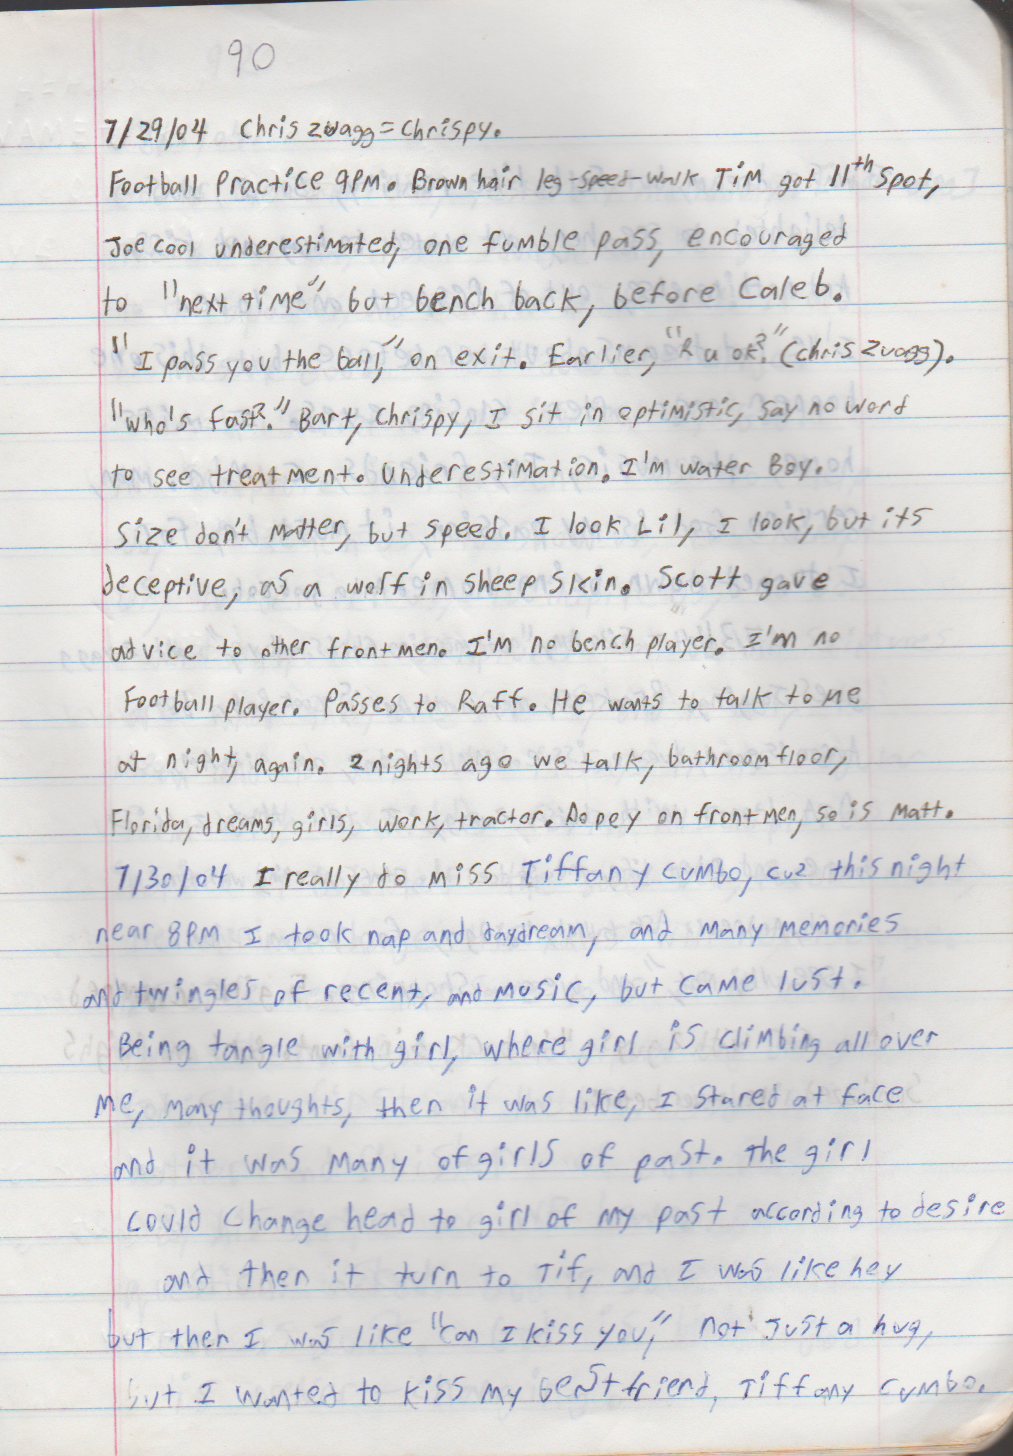 90
7/29/04 Chris Zwagg = Chrispy.
Football Practice 9PM. Brown hair leg-speed-walk Tim got 11th spot,
Joe cool underestimated, one fumble pass, encouraged
to "next time" but bench back, before Caleb.
"I pass you the ball," on exit. Earlier, "R u ok?" (Chris Zwagg).
"who's fast?" Bart, Chrispy, I sit in optimistic, say no word
to see treatment. Underestimation. I'm water Boy.
Size don't matter, but speed. I look Lil, I look, but its
deceptive, as a wolf in sheep skin. Scott gave
advice to other front men. I'm no bench player. I'm no
Football player. Passes to Raff. He wants to talk to me
at night, again. 2 nights ago we talk, bathroom floor,
Florida, dreams, girls, work, tractor. Dopey on front men, so is Matt.
7/30/04 I really do miss Tiffany Cumbo, cuz this night
near 8PM I took nap and daydream, and many memories
and twingles of recent, and music, but came lust.
Being tangle with girl, where girl is climbing all over
me, many thoughts, then it was like, I stared at face
and it was many of girls of past. The girl
could change head to girl of my past according to desire
and then it turn to Tif, and I was like hey
but then I was like "can I kiss you," not just a hug,
but I wanted to kiss my best friend, Tiffany Cumbo.